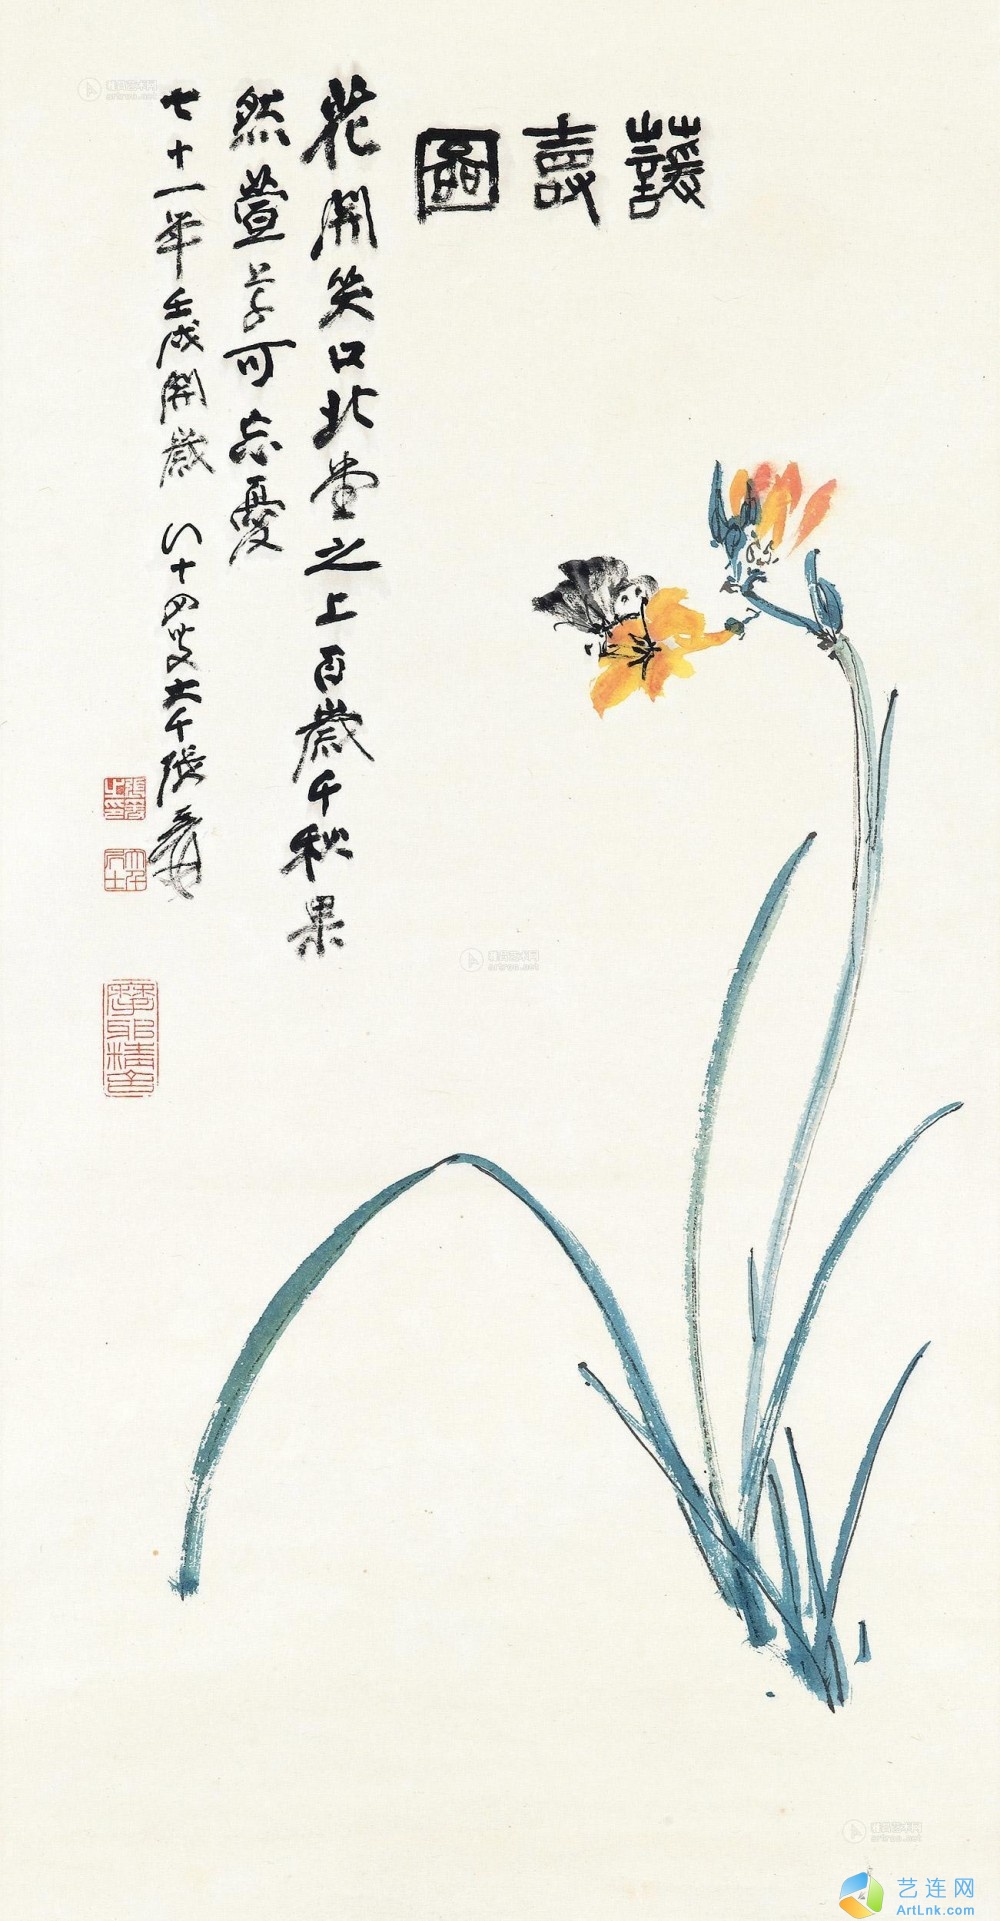 蘐壽圖
花開笑口北堂之上百歲千秋果
然萱草可忘憂
七十一年壬戌開歲 八十四叟大千張爰
張爰之印
大千居士
摩耶精舍
艺连网
ArtLnk.com